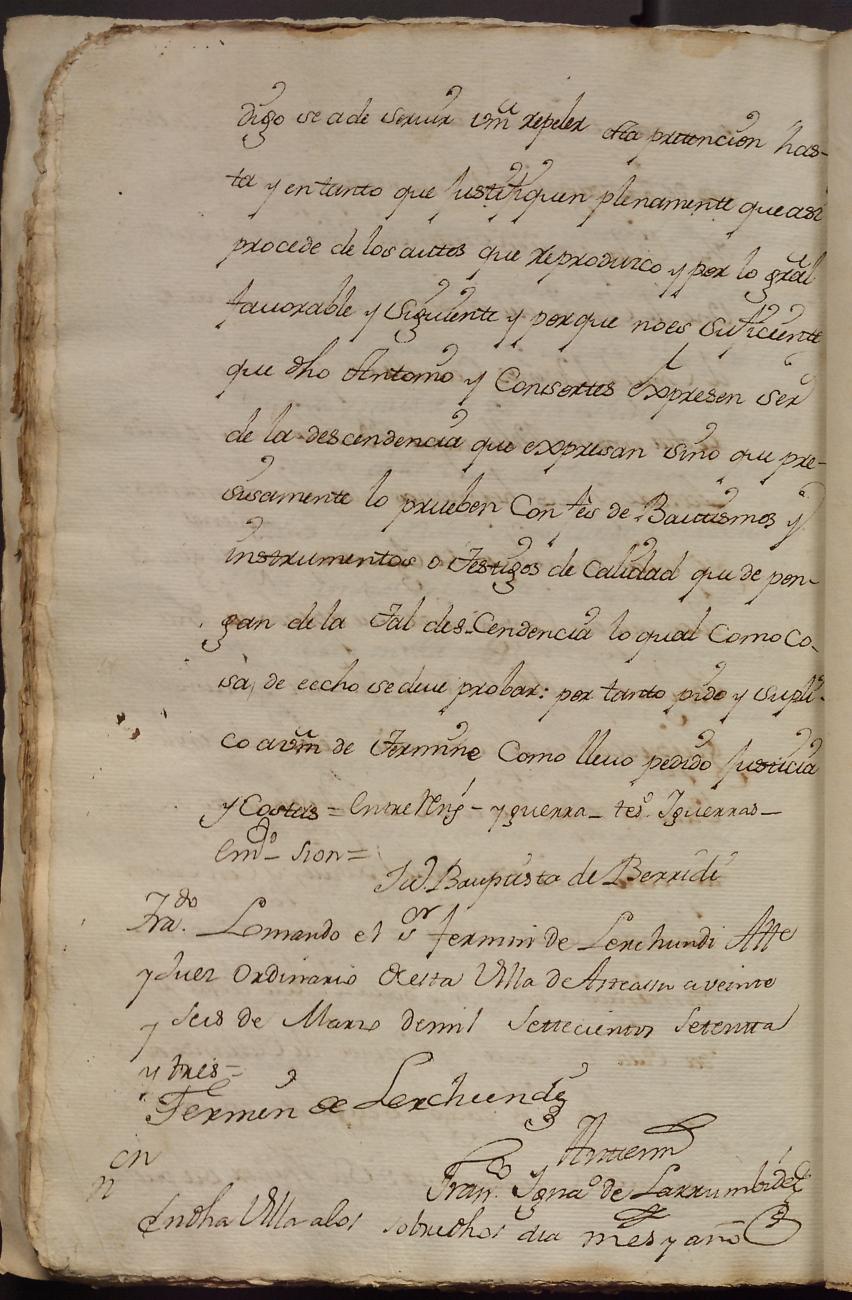 digo se a de servir Vm repeler dha pretencion has-
ta y en tanto que Justifiquen plenamente que asi
procede de los auttos que reproduzco y por lo gral
favorable y Siguiente y porque no es suficiente
que dho Antonio y Consortes expresen ser
de la descendencia que expresan sino que pre-
sisamente lo prueben Con fees de Bautismos y
instrumentos o Testigos de Calidad que de pon-
gan de la Tal des-Cendencia lo qual Como Co-
sa, de echo se deve probar: por tanto pido y supli-
co a Vm de Termine Como llevo pedido Justicia
y Costas = Entre Rens - y guerra - tes. Iguerras -
Emdo - sion =
Ju. Baupista de Berridi
Lo mando el Sor Fermin de Lerchundi Alle
y Juez Ordinario de esta Villa de Asteasu a veinte
y Seis de Marzo de mil Settecientos Setentta
y tres =
Fermin de Lerchundi
Antemi
Franco Ignao de Larrumbide
En dha Villa a los sobredhos dia mes y año